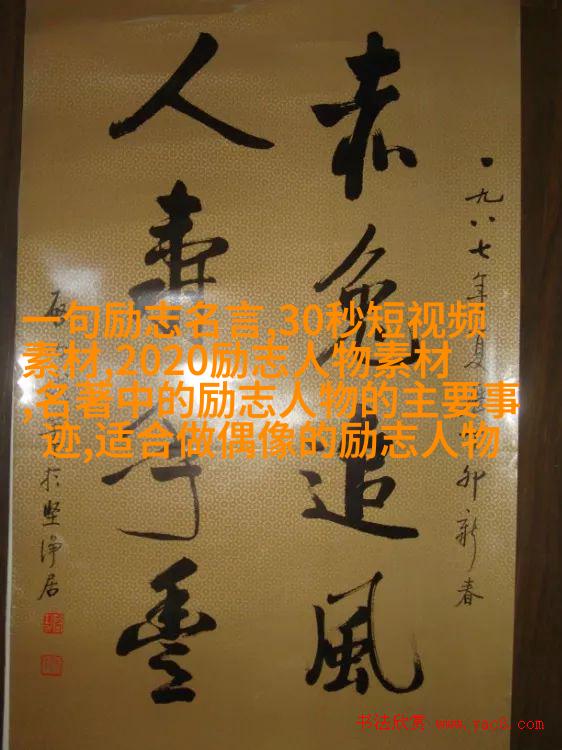 一九八七年夏 卯新春
赤兔追風
人寿年豊
於坚净居
一句励志名言,30秒短视频
素材,2020励志人物素材
,名著中的励志人物的主要事
迹,适合做偶像的励志人物
书法欣赏 www.yac8.com